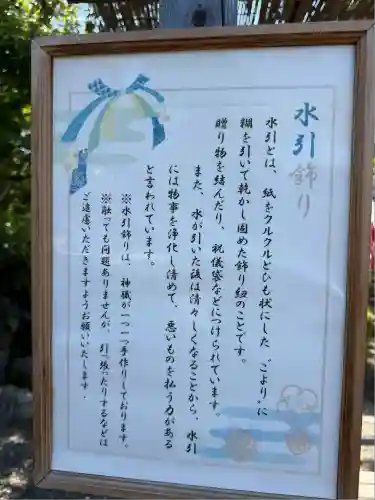 水引飾り
水引とは、紙をクルクルとひも状にした〝こより〟に
糊を引いて乾かし固めた飾り紐のことです。
贈り物を結んだり、祝儀袋などにつけられています。
また、水が引いた後は清々しくなることから、水引
には物事を浄化し清めて、悪いものを払う力がある
と言われています。
※水引飾りは、神職が一つ一つ手作りしております。
※触っても問題ありませんが、引っ張ったりするなどは
ご遠慮いただきますようお願いいたします。